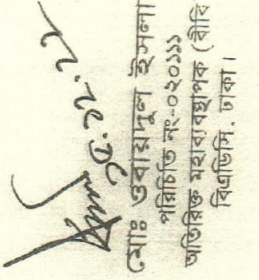 মোঃ ওবায়দুল ইসলা
পরিচিতি নং-০২০১১১
অতিরিক্ত মহাব্যবস্থাপক (বীবি
বিএডিসি, ঢাকা।